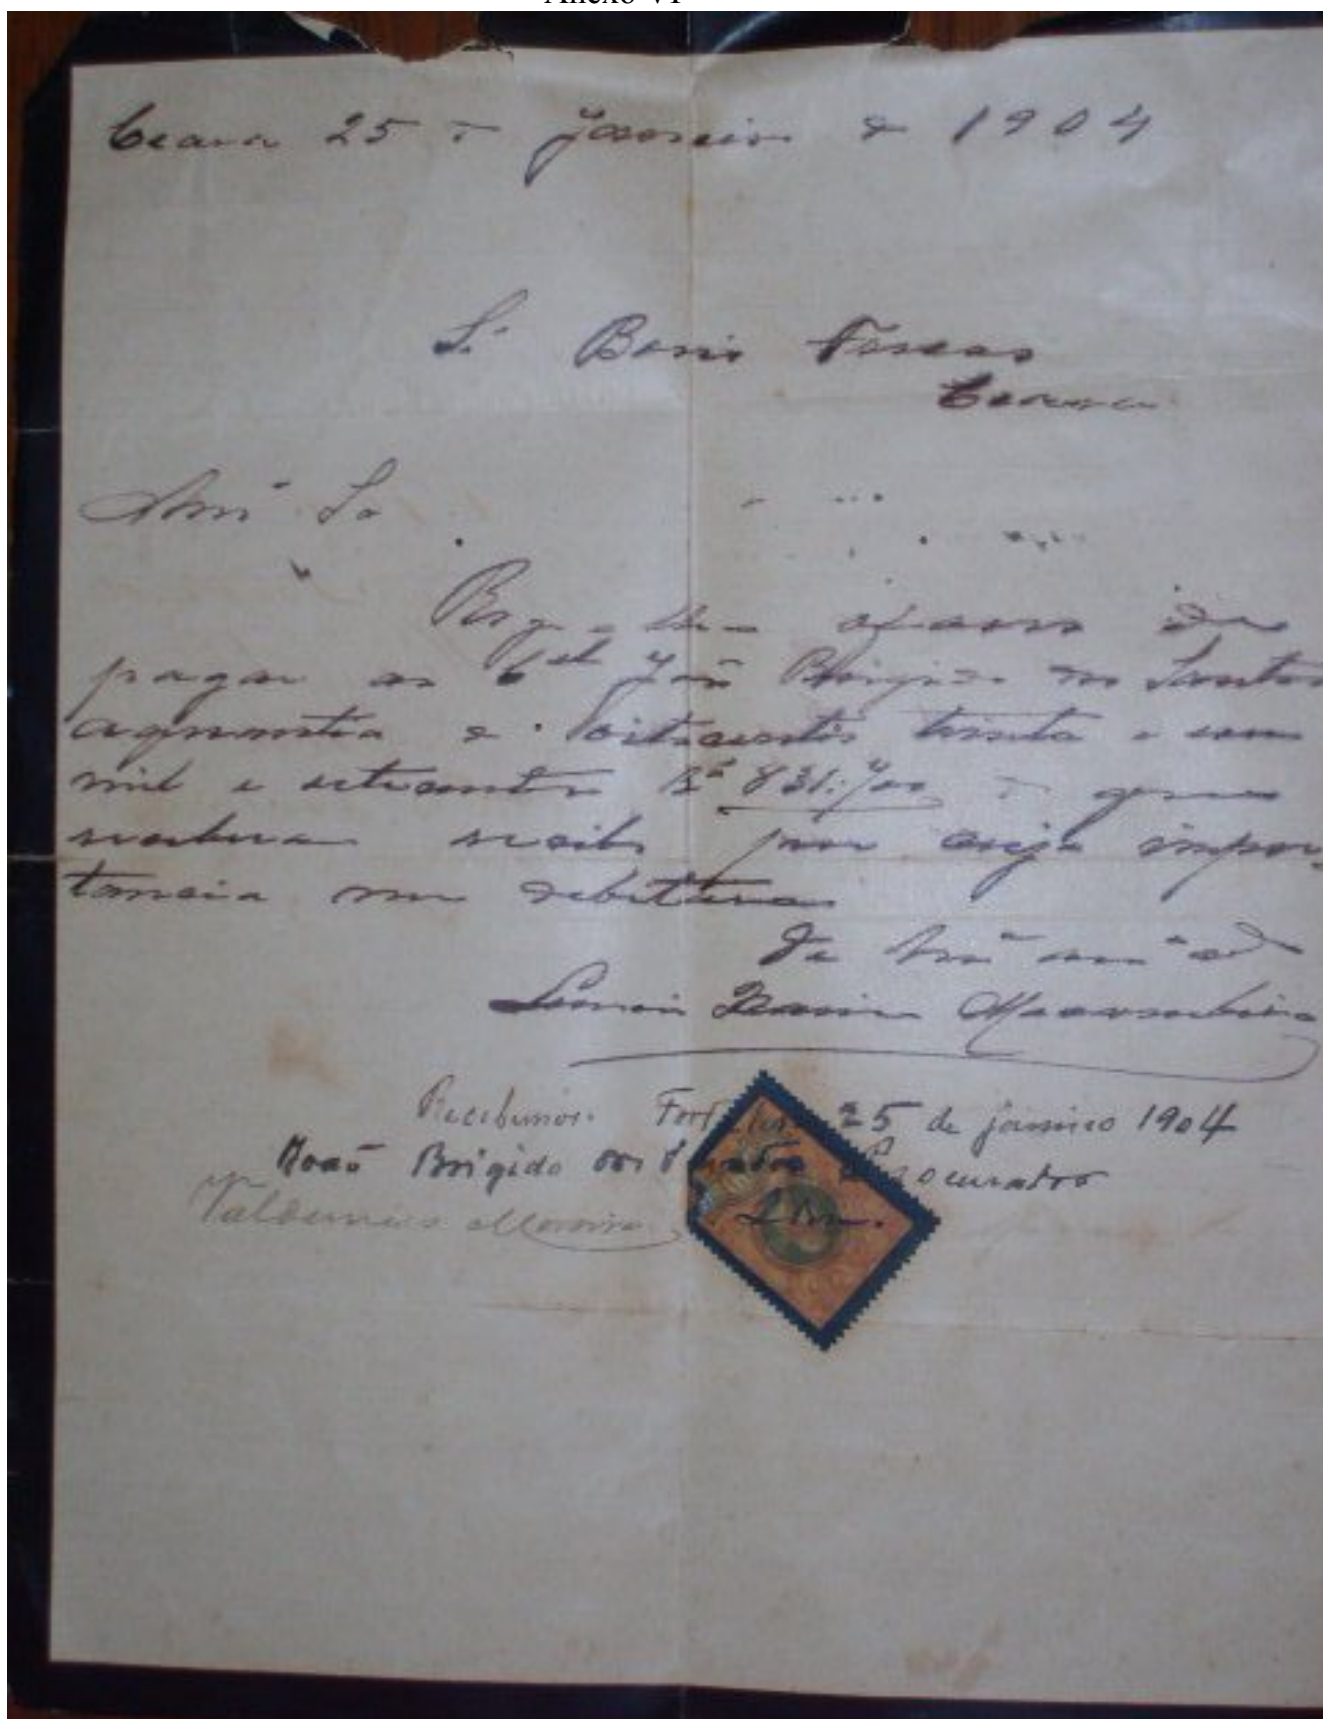 Anexo VI
Ceara 25 de Janeiro de 1904
Sr Boris Freres
Ceara
Amº Sr
Rogo-lhes o favor de
pagar ao Cel João Brigido dos Santos
a quantia de oitocentos trinta e um
mil e setecentos Rs 831:700 de que
recibo por cuja impor-
tancia me debitara
De
Recebemos. Fortaleza 25 de janeiro 1904
João Brigido dos Santos Procurador